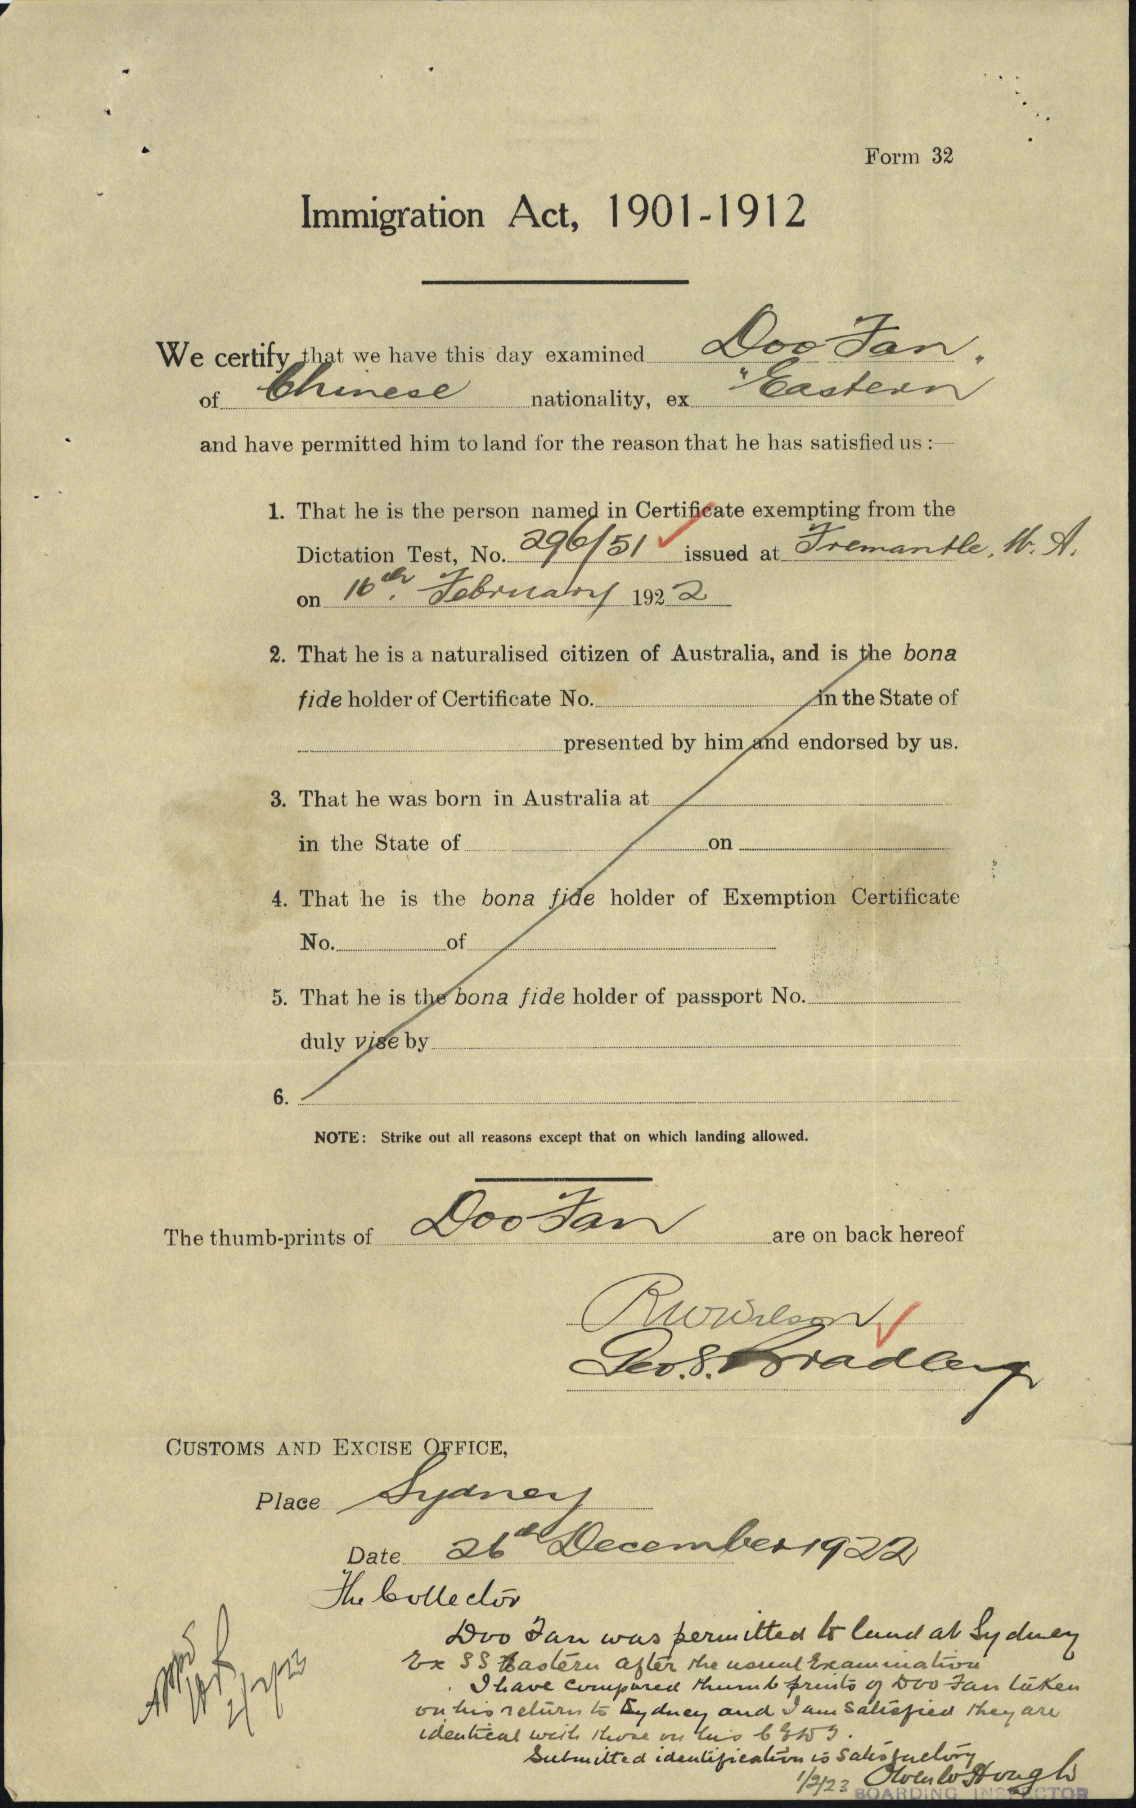 Form 32
Immigration Act, 1901-1912
We certify that we have this day examined Doo Fan.
of Chinese nationality, ex "Eastern
and have permitted him to land for the reason that he has satisfied us :—
1. That he is the person named in Certificate exempting from the
Dictation Test, No. 296/51 issued at Fremantle, W. A.
on 16th. February 1922
2. That he is a naturalised citizen of Australia, and is the bona
fide holder of Certificate No. in the State of
presented by him and endorsed by us.
3. That he was born in Australia at
in the State of on
4. That he is the bona fide holder of Exemption Certificate
No. of
5. That he is the bona fide holder of passport No.
duly vise by
6.
NOTE: Strike out all reasons except that on which landing allowed.
The thumb-prints of Doo Fan are on back hereof
RW Wilson
Geo. S. Bradley
CUSTOMS AND EXCISE OFFICE,
Place Sydney
Date 26th December 1922
The Collector
Doo Fan was permitted to land at Sydney
Ex SS Eastern after the usual Examination
I have compared thumb prints of Doo Fan taken
on his return to Sydney and I am satisfied they are
identical with those on his CEDT.
Submitted identification is satisfactory
1/2/23
BOARDING INSPECTOR
2/2/23